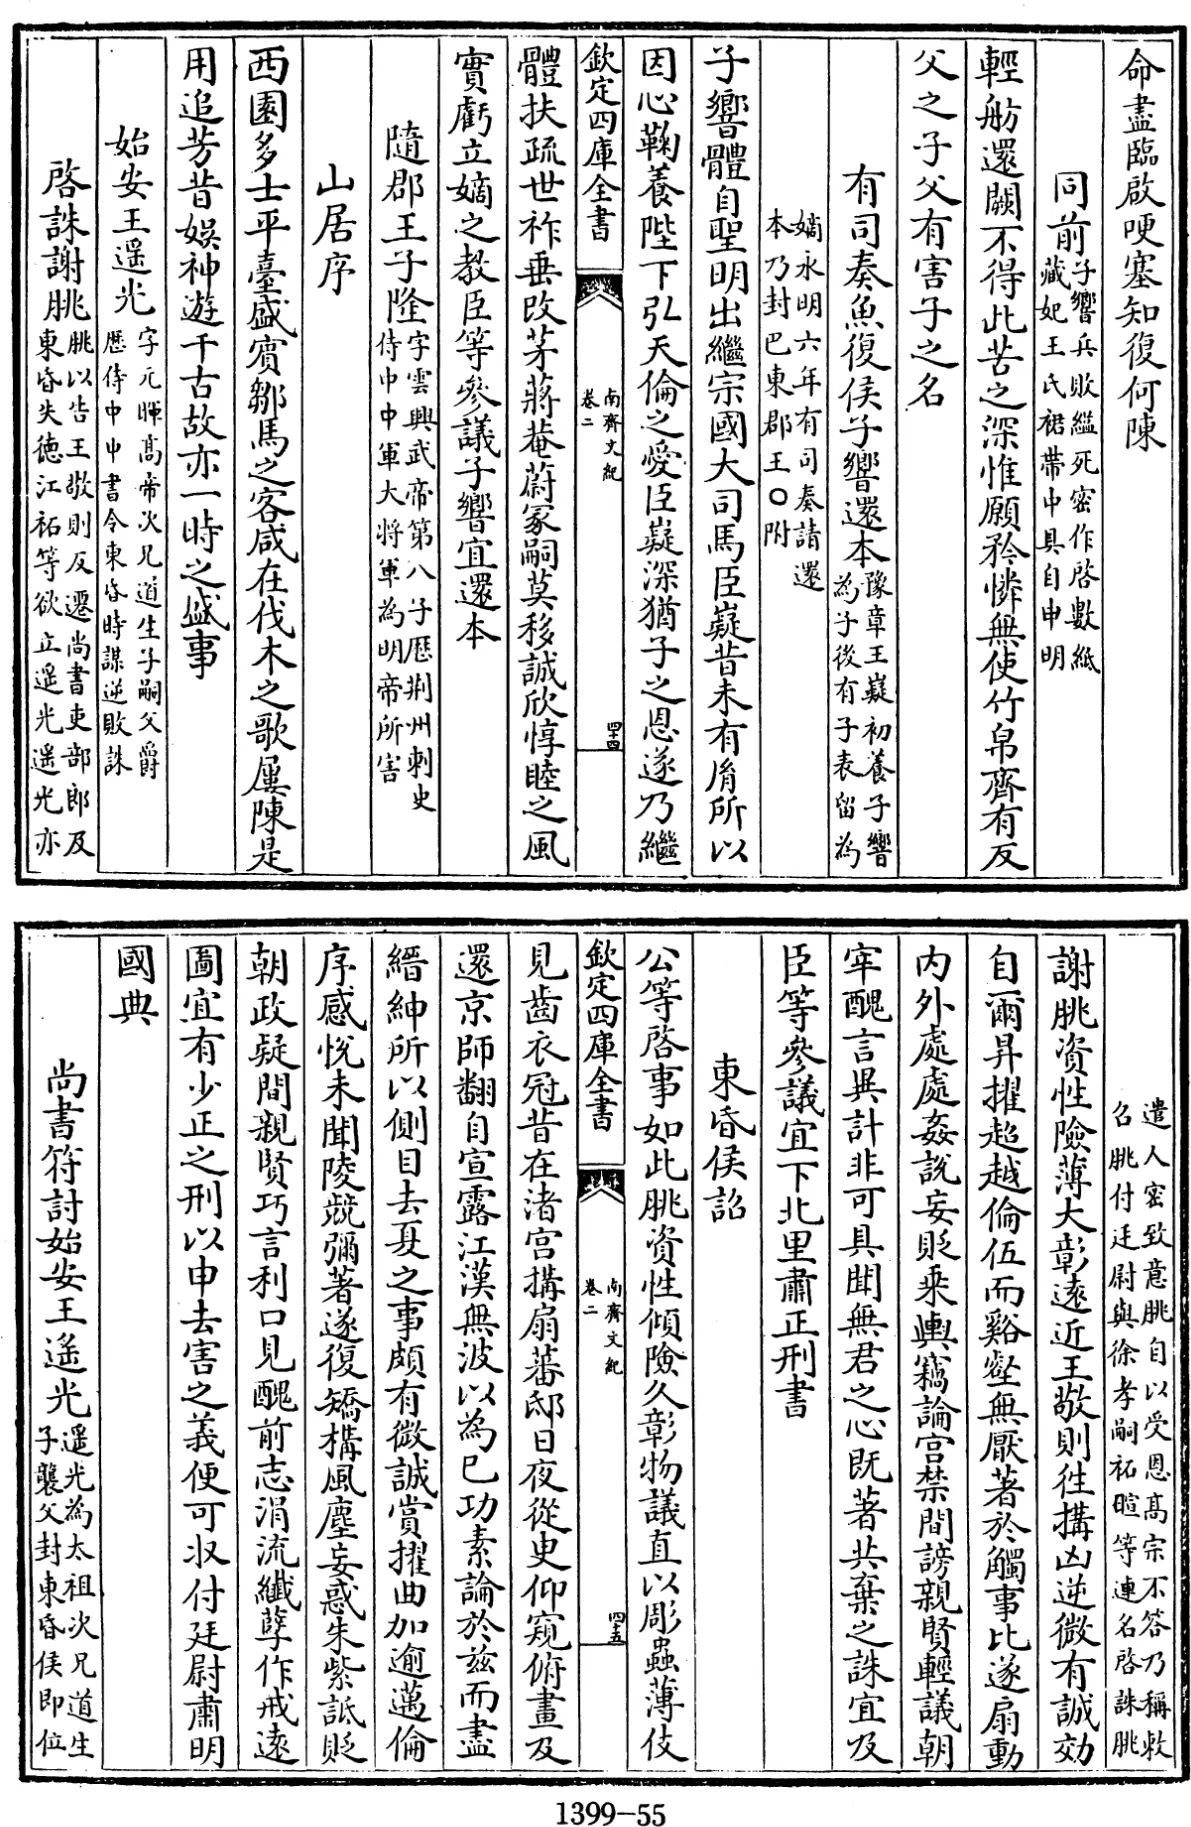 命盡臨啟哽塞知復何陳
同前子響兵敗繼死密作啓數紙
藏妃王氏裙帶中具自申明
輕舫還闕不得此苦之深惟願矜憐無使竹帛齊有反
父之子父有害子之名
有司奏魚復侯子響還本豫章王嶷初養子響
為子後有子表留為
嫡永明六年有司奏請還
本乃封巴東郡王○附
子響體自聖明出繼宗國大司馬臣嶷昔未有胤所以
因心鞠養陛下弘天倫之愛臣嶷深猶子之恩遂乃繼
欽定四庫全書
南齊文紀
卷二
四十四
體扶疏世祚垂改茅蔣菴蔚冢嗣莫移誠欣惇睦之風
實虧立嫡之教臣等參議子響宜還本
隨郡王子隆字雲興武帝第八子歷荆州刺史
侍中中軍大將軍為明帝所害
山居序
西園多士平臺盛賓鄒馬之客咸在伐木之歌屢陳是
用追芳昔娛神遊千古故亦一時之盛事
始安王遥光字元暉高帝次兄道生子嗣父爵
歷侍中中書令東昏時謀逆敗誅
啓誅謝朓朓以告王敬則反遷尚書吏部郎及
東昏失德江祏等欲立遥光遥光亦
遣人密致意朓自以受恩髙宗不答乃稱敕
名朓付廷尉與徐孝嗣祏暄等連名啓誅朓
謝朓資性險薄大彰遠近王敬則往搆凶逆微有誠効
自爾昇擢超越倫伍而谿壑無厭著於觸事比遂扇動
内外處處姦說妄貶乘輿竊論宫禁間謗親賢輕議朝
宰醜言異計非可具聞無君之心既著共棄之誅宜及
臣等參議宜下北里肅正刑書
東昏侯詔
公等啓事如此朓資性傾險久彰物議直以彫蟲薄伎
欽定四庫全書
南齊文紀
卷二
四十五
見齒衣冠昔在渚宫搆扇蕃邸日夜從史仰窺俯畫及
還京師翻自宣露江漢無波以為已功素論於兹而盡
縉紳所以側目去夏之事頗有微誠賞擢曲加逾邁倫
序感悦未聞陵競彌著遂復矯構風塵妄惑朱紫詆貶
朝政疑間親賢巧言利口見醜前志涓流纖孽作戒遠
圖宜有少正之刑以申去害之義便可收付廷尉肅明
國典
尚書符討始安王遥光遥光為太祖次兄道生
子襲父封東昏侯即位
1399-55